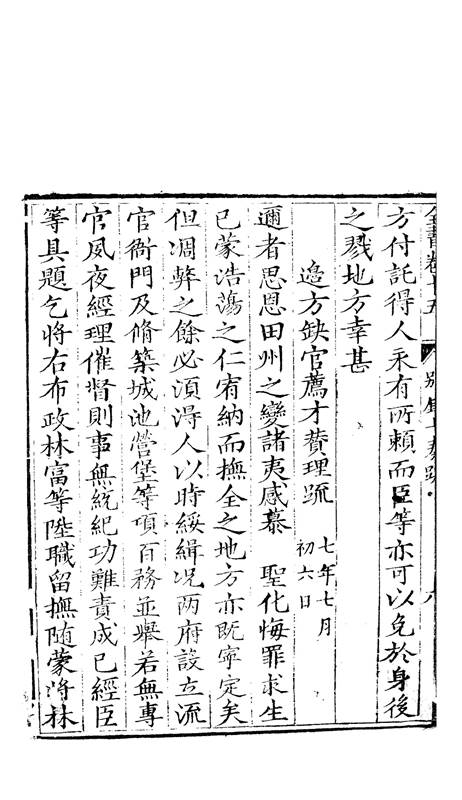 全書卷十五 別錄 奏疏 八
方付託得人永有所賴而臣等亦可以免於身後
之戮地方幸甚
邉方缺官薦才賛理䟽 七年七月初六日
邇者思恩田州之變諸夷感慕 聖化悔罪求生
已蒙浩蕩之仁宥納而撫全之地方亦既寧定矣
但凋弊之餘必湏得人以時綏緝况两府設立流
官衙門及脩築城池營堡等項百務並舉若無專
官夙夜經理催督則事無統紀功難責成已經臣
等具題乞將右布政林富等陞職留撫隨蒙將林